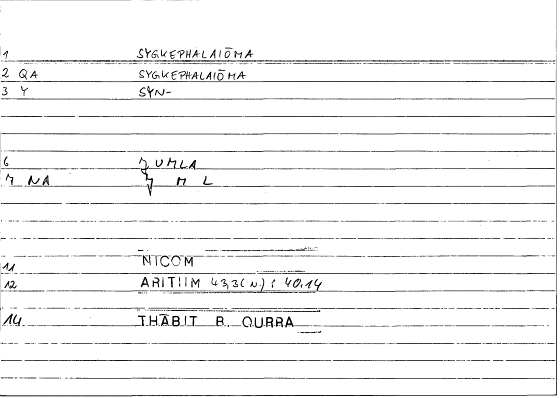 1 SYGKEPHALAIŌMA
2 QA SYGKEPHALAIŌMA
3 Y SYN-
6 ǦUMLA
7 NA Ǧ M L
11 NICOM
12 ARITHM 43,3(N.) : 40,14
14 THĀBIT B. QURRA